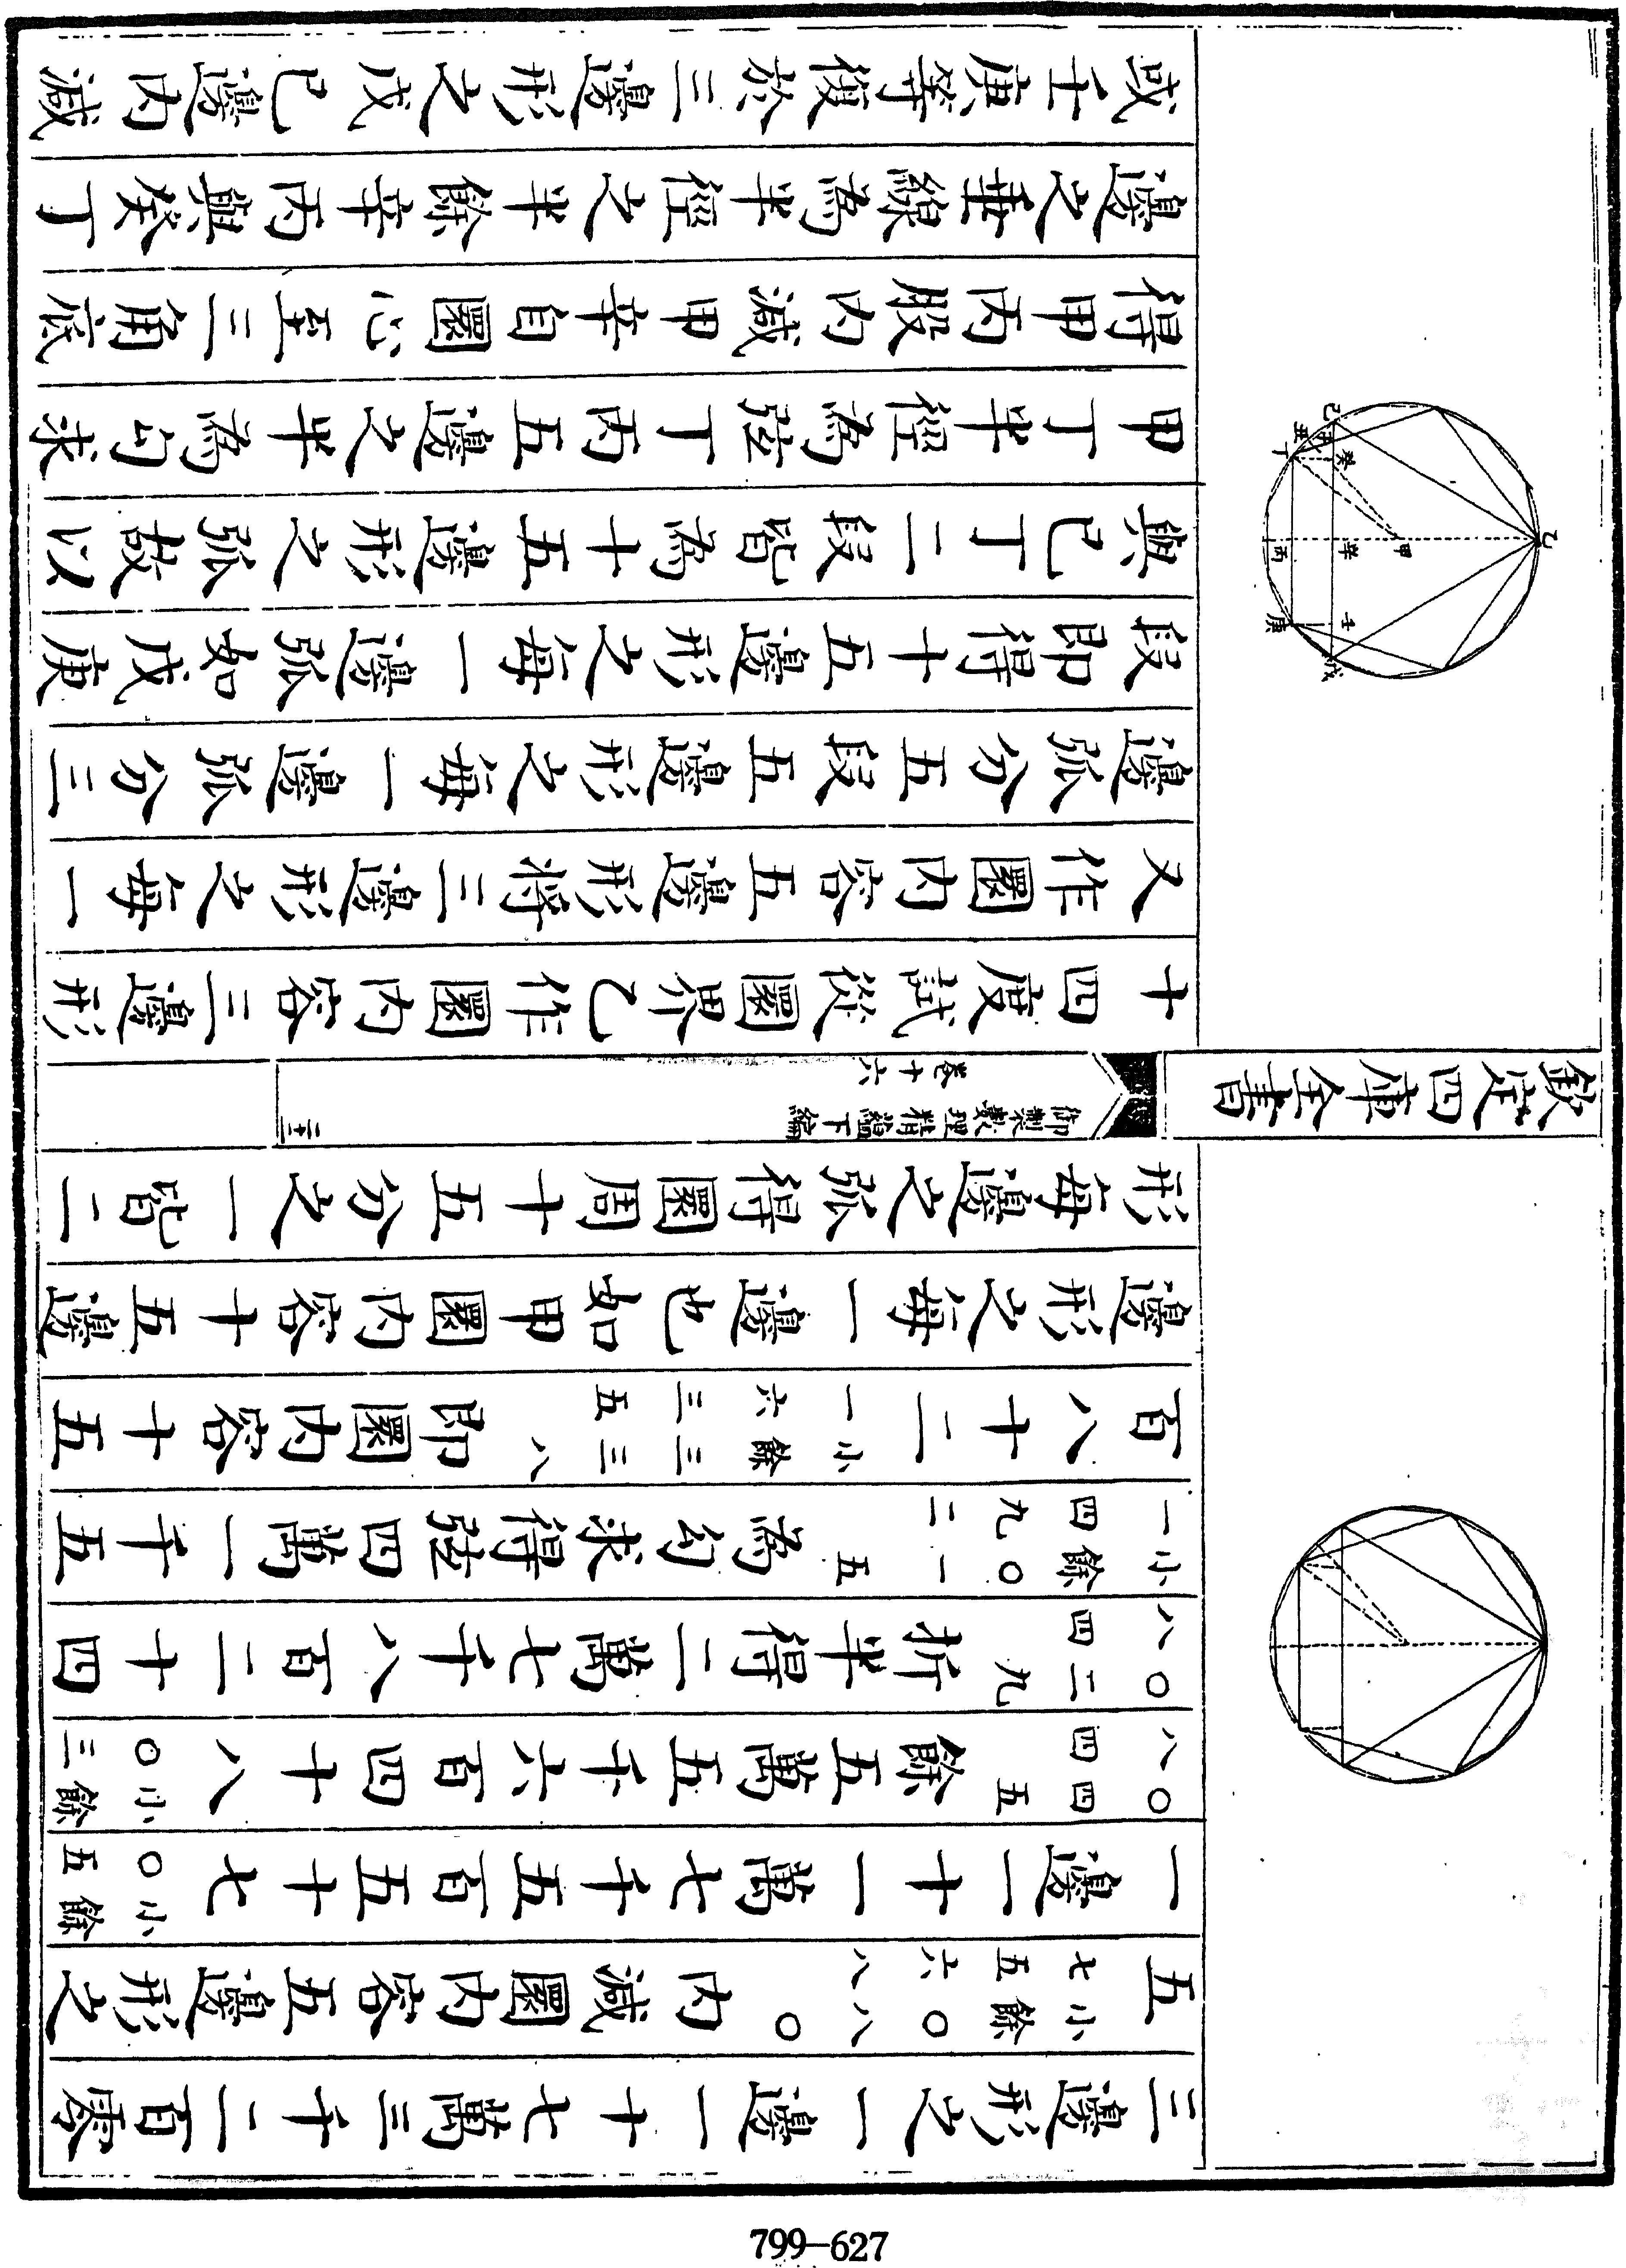 三邊形之一邊一十七萬三千二百零
五小餘〇八〇七五六八內減圜內容五邊形之
一邊一十一萬七千五百五十七小餘〇五
〇四五八四餘五萬五千六百四十八小餘〇三
〇二九八四折半得二萬七千八百二十四
小餘〇一五一四九二為勾求得弦四萬一千五
百八十二小餘三三八一六三五即圜內容十五
邊形之每一邊也如甲圜內容十五邊
形每邊之弧得圜周十五分之一皆二
欽定四庫全書
御製數理精蘊下編
卷十六
十四度試從圜界乙作圜內容三邊形
又作圜內容五邊形將三邊形之每一
邊弧分五段五邊形之每一邊弧分三
段即得十五邊形之每一邊弧如戊庚
與己丁二段皆為十五邊形之弧故以
甲丁半徑為弦丁丙五邊之半為勾求
得甲丙股內減甲辛自圜心至三角底
邊之垂線為半徑之半餘辛丙與癸丁
或壬庚等復於三邊形之戊己邊內減
乙
甲
辛
丙
壬
庚
戊
己
丑
子
癸
丁
799-627